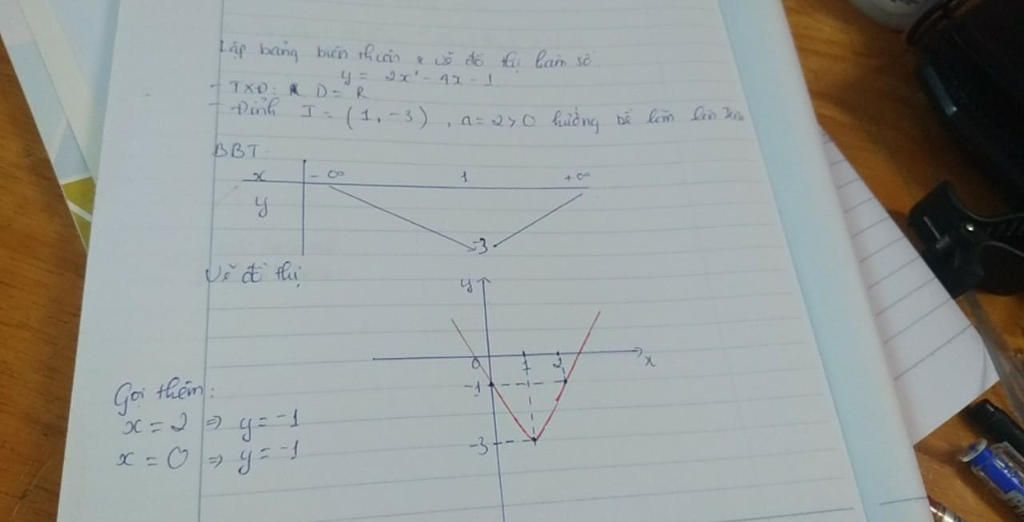 Lập bảng biến thiên & vẽ đồ thị hàm số
y = 2x² - 4x - 1
- TXĐ: D = R
- Đỉnh I = (1, -3), a = 2 > 0 hướng bề lõm lên trên
BBT
x -∞ 1 +∞
y
-3
Vẽ đồ thị
y
0 1 2 x
-1
-3
Gọi thêm:
x = 2 => y = -1
x = 0 => y = -1